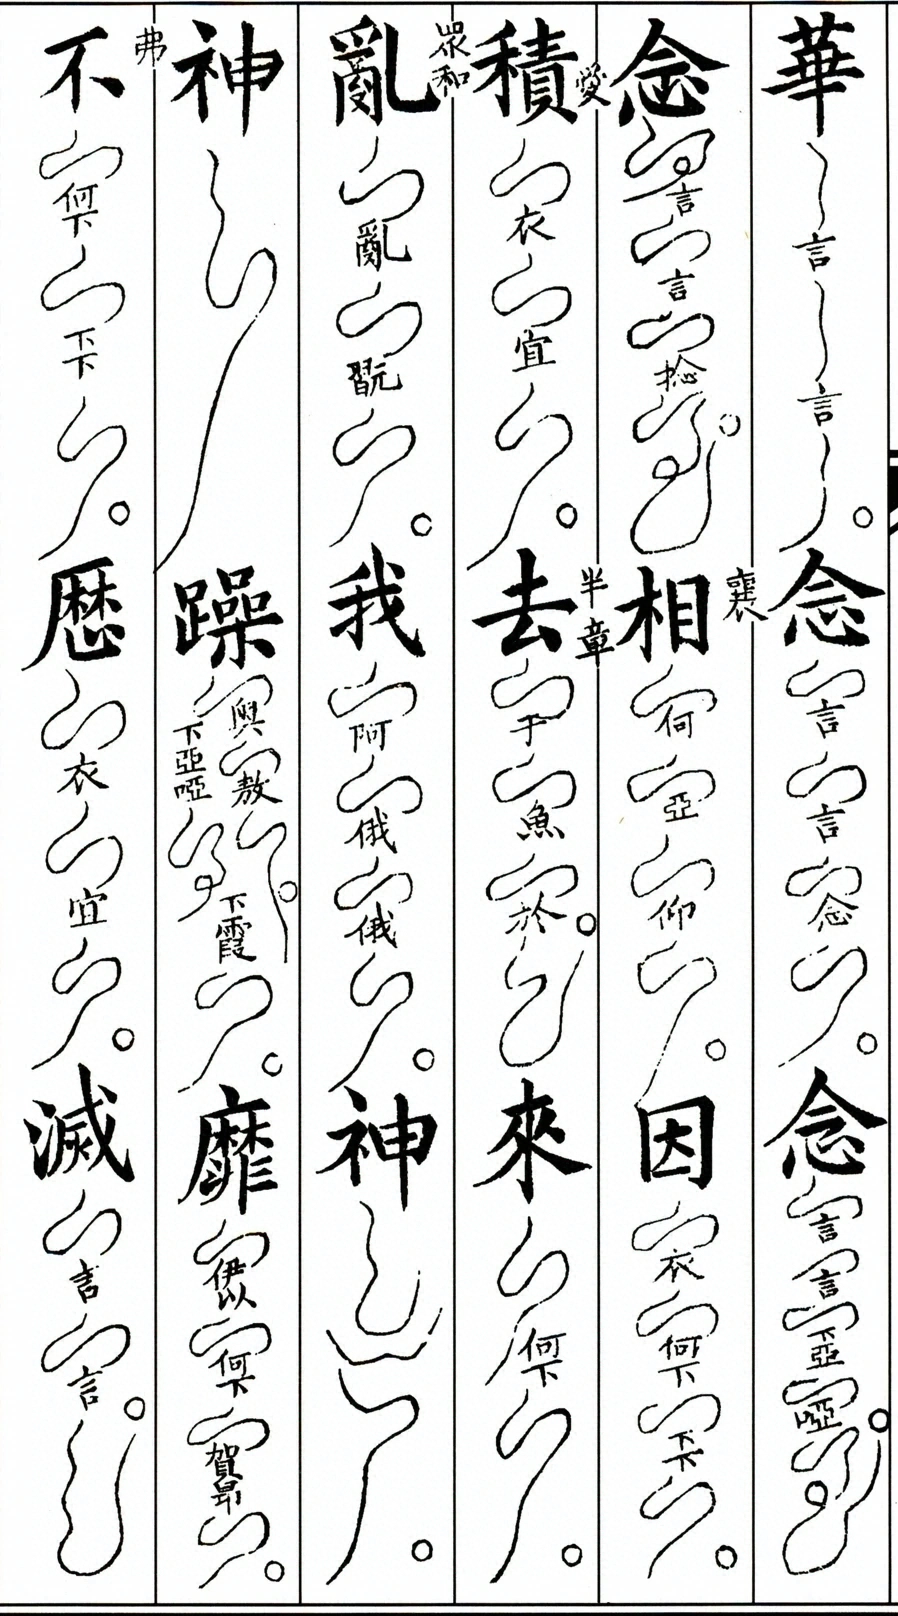 華言言念言言念念言言下亞啞
念言言捻相何亞仰因衣何下下下
愛積衣宜半章去于魚於來何下
眾和亂亂翫我阿俄俄神
神躁奧敖下亞啞下霞靡伊以何下賀昂
弗不何下下下歷衣宜滅言言
襄